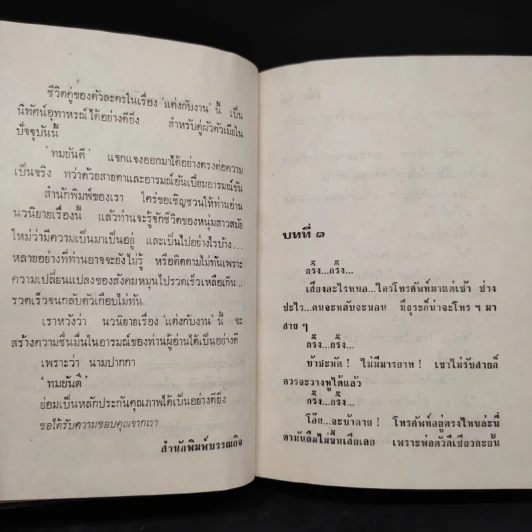 ชีวิตคู่ของตัวละครในเรื่อง ‘แต่งกับงาน’ นี้ เป็น
นิทัศน์อุทาหรณ์ได้อย่างดียิ่ง สำหรับคู่ผัวตัวเมียใน
ปัจจุบันนี้
‘ทมยันตี’ แจกแจงออกมาได้อย่างตรงต่อความ
เป็นจริง ทว่าด้วยสายตาและอารมณ์อันเปี่ยมอารมณ์ขัน
สำนักพิมพ์ของเรา ใคร่ขอเชิญชวนให้ท่านอ่าน
นวนิยายเรื่องนี้ แล้วท่านจะรู้จักชีวิตของหนุ่มสาวสมัย
ใหม่ว่ามีความเป็นมาเป็นอยู่ และเป็นไปอย่างไรบ้าง...
หลายอย่างที่ท่านอาจจะยังไม่รู้ หรือติดตามไม่ทันเพราะ
ความเปลี่ยนแปลงของสังคมหมุนไปรวดเร็วเหลือเกิน...
รวดเร็วจนกลับตัวเกือบไม่ทัน.
เราหวังว่า นวนิยายเรื่อง ‘แต่งกับงาน’ นี้ จะ
สร้างความชื่นมื่นในอารมณ์ของท่านผู้อ่านได้เป็นอย่างดี
เพราะว่า นามปากกา
‘ทมยันตี’
ย่อมเป็นหลักประกันคุณภาพได้เป็นอย่างดียิ่ง
ขอได้รับความขอบคุณจากเรา
สำนักพิมพ์บรรณกิจ
บทที่ ๑
กริ๊ง...กริ๊ง...
เสียงอะไรหนอ...ใครโทรศัพท์มาแต่เช้า ช่าง
ปะไร...คนจะหลับจะนอน มีธุระก็น่าจะโทร ฯ มา
สาย ๆ
กริ๊ง...กริ๊ง...
บ้าชะมัด ! ไม่มีมารยาท ! เขาไม่รับสายก็
ควรจะวางหูได้แล้ว
กริ๊ง...กริ๊ง...
โอ๊ย...จะบ้าตาย ! โทรศัพท์อยู่ตรงไหนล่ะนี่
ตามันลืมไม่ขึ้นเสียเลย เพราะพ่อตัวดีเชียวคะยั้น